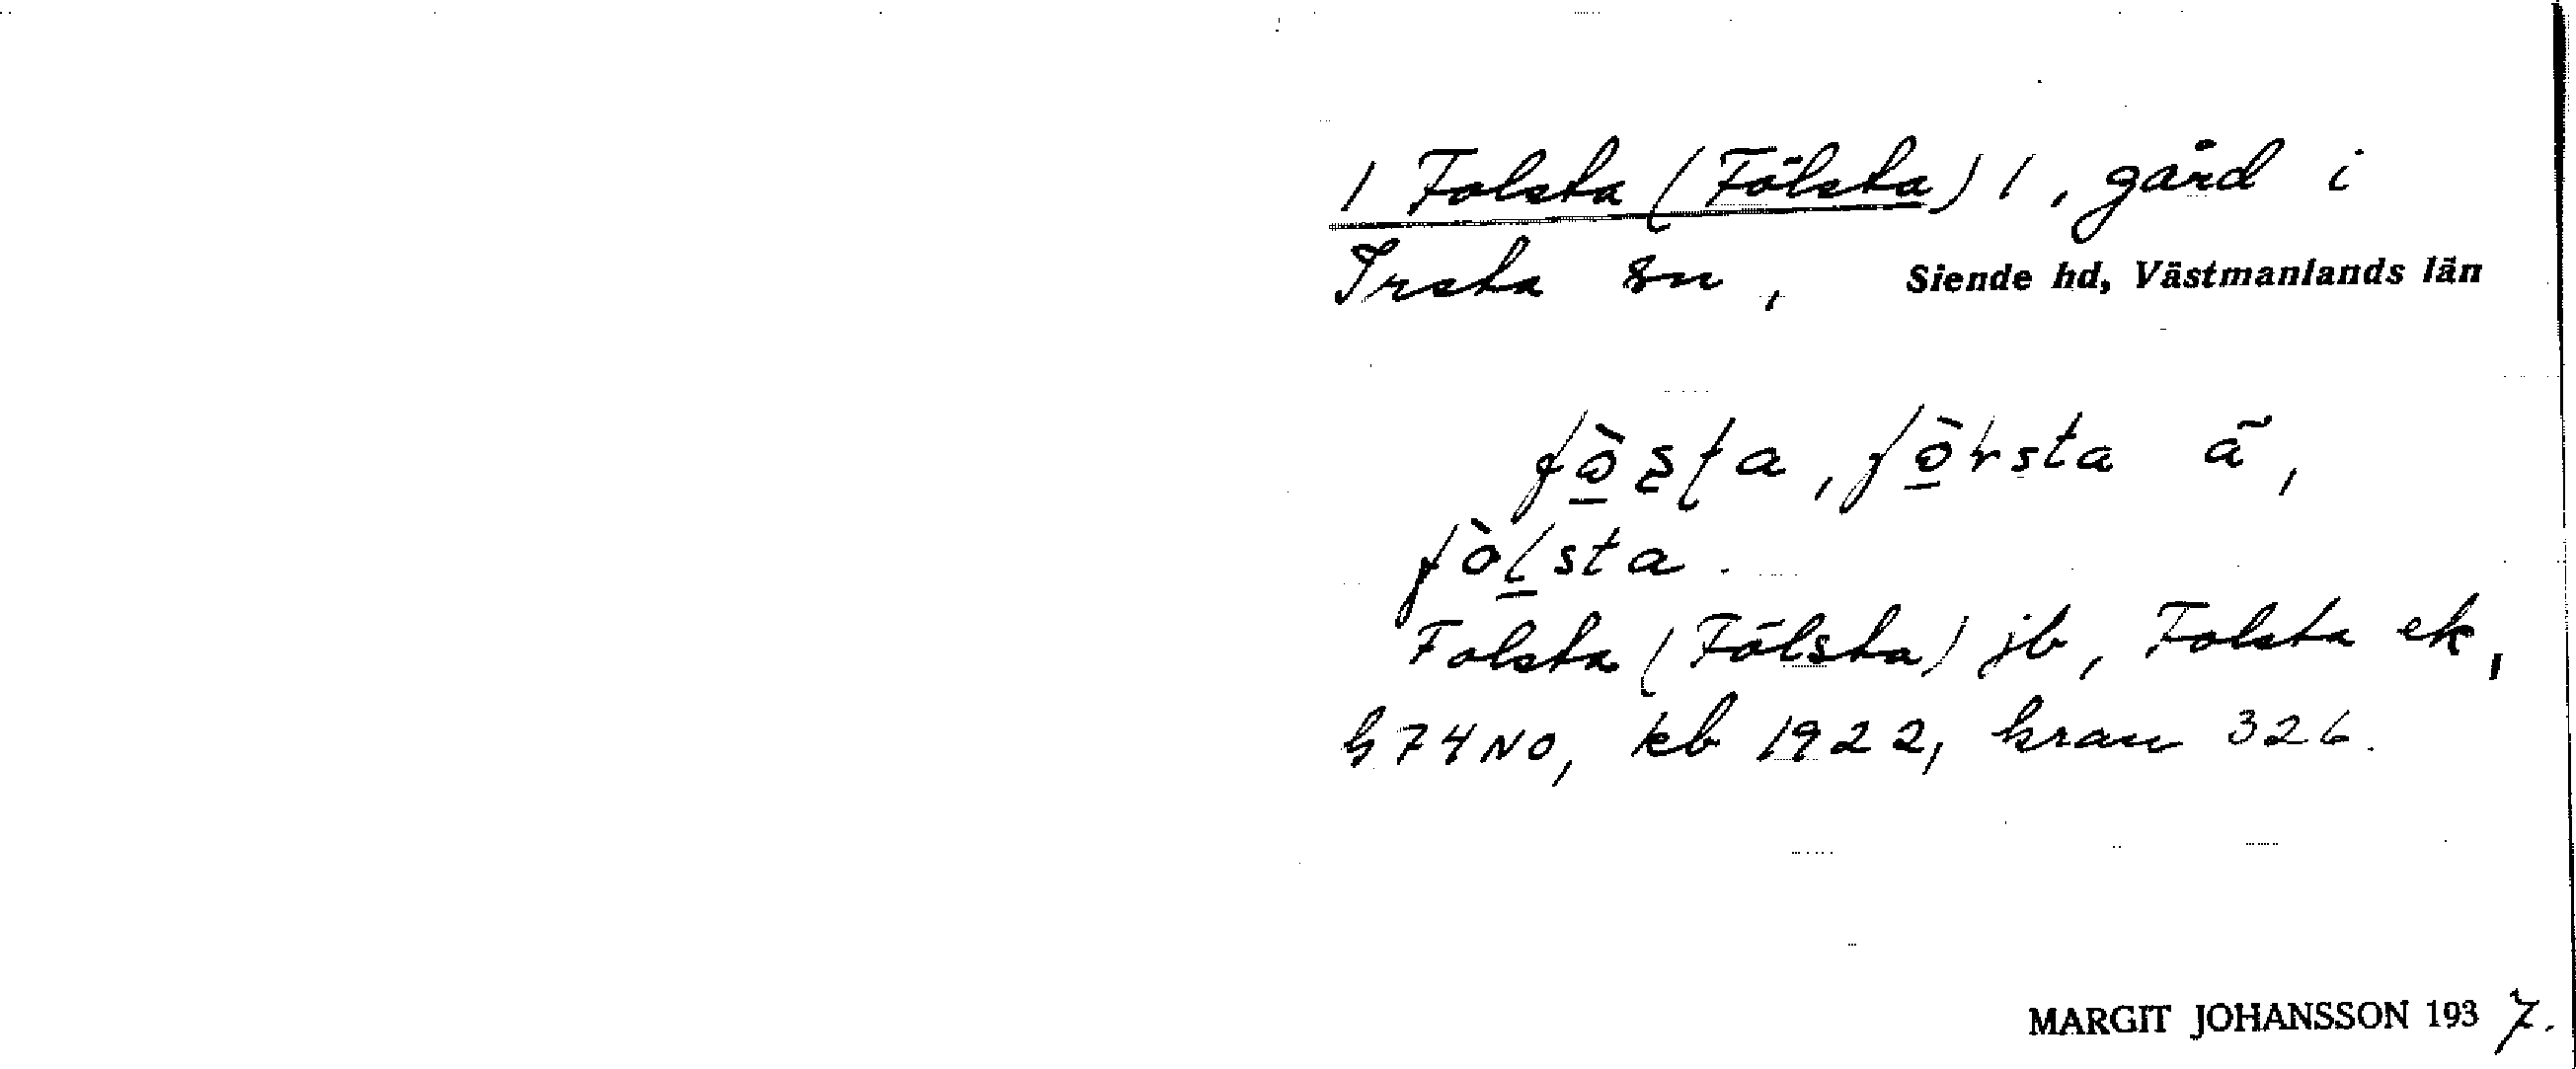 1 Folsta (Fölsta) 1, gård i
Irsta sn, Siende hd, Västmanlands län
fò̱ʂʈa, fò̱rsta ã,
fòḻsta.
Folsta (Fölsta) jb, Folsta ek,
h74NO, kb 1922, kran 326.
MARGIT JOHANSSON 1937.